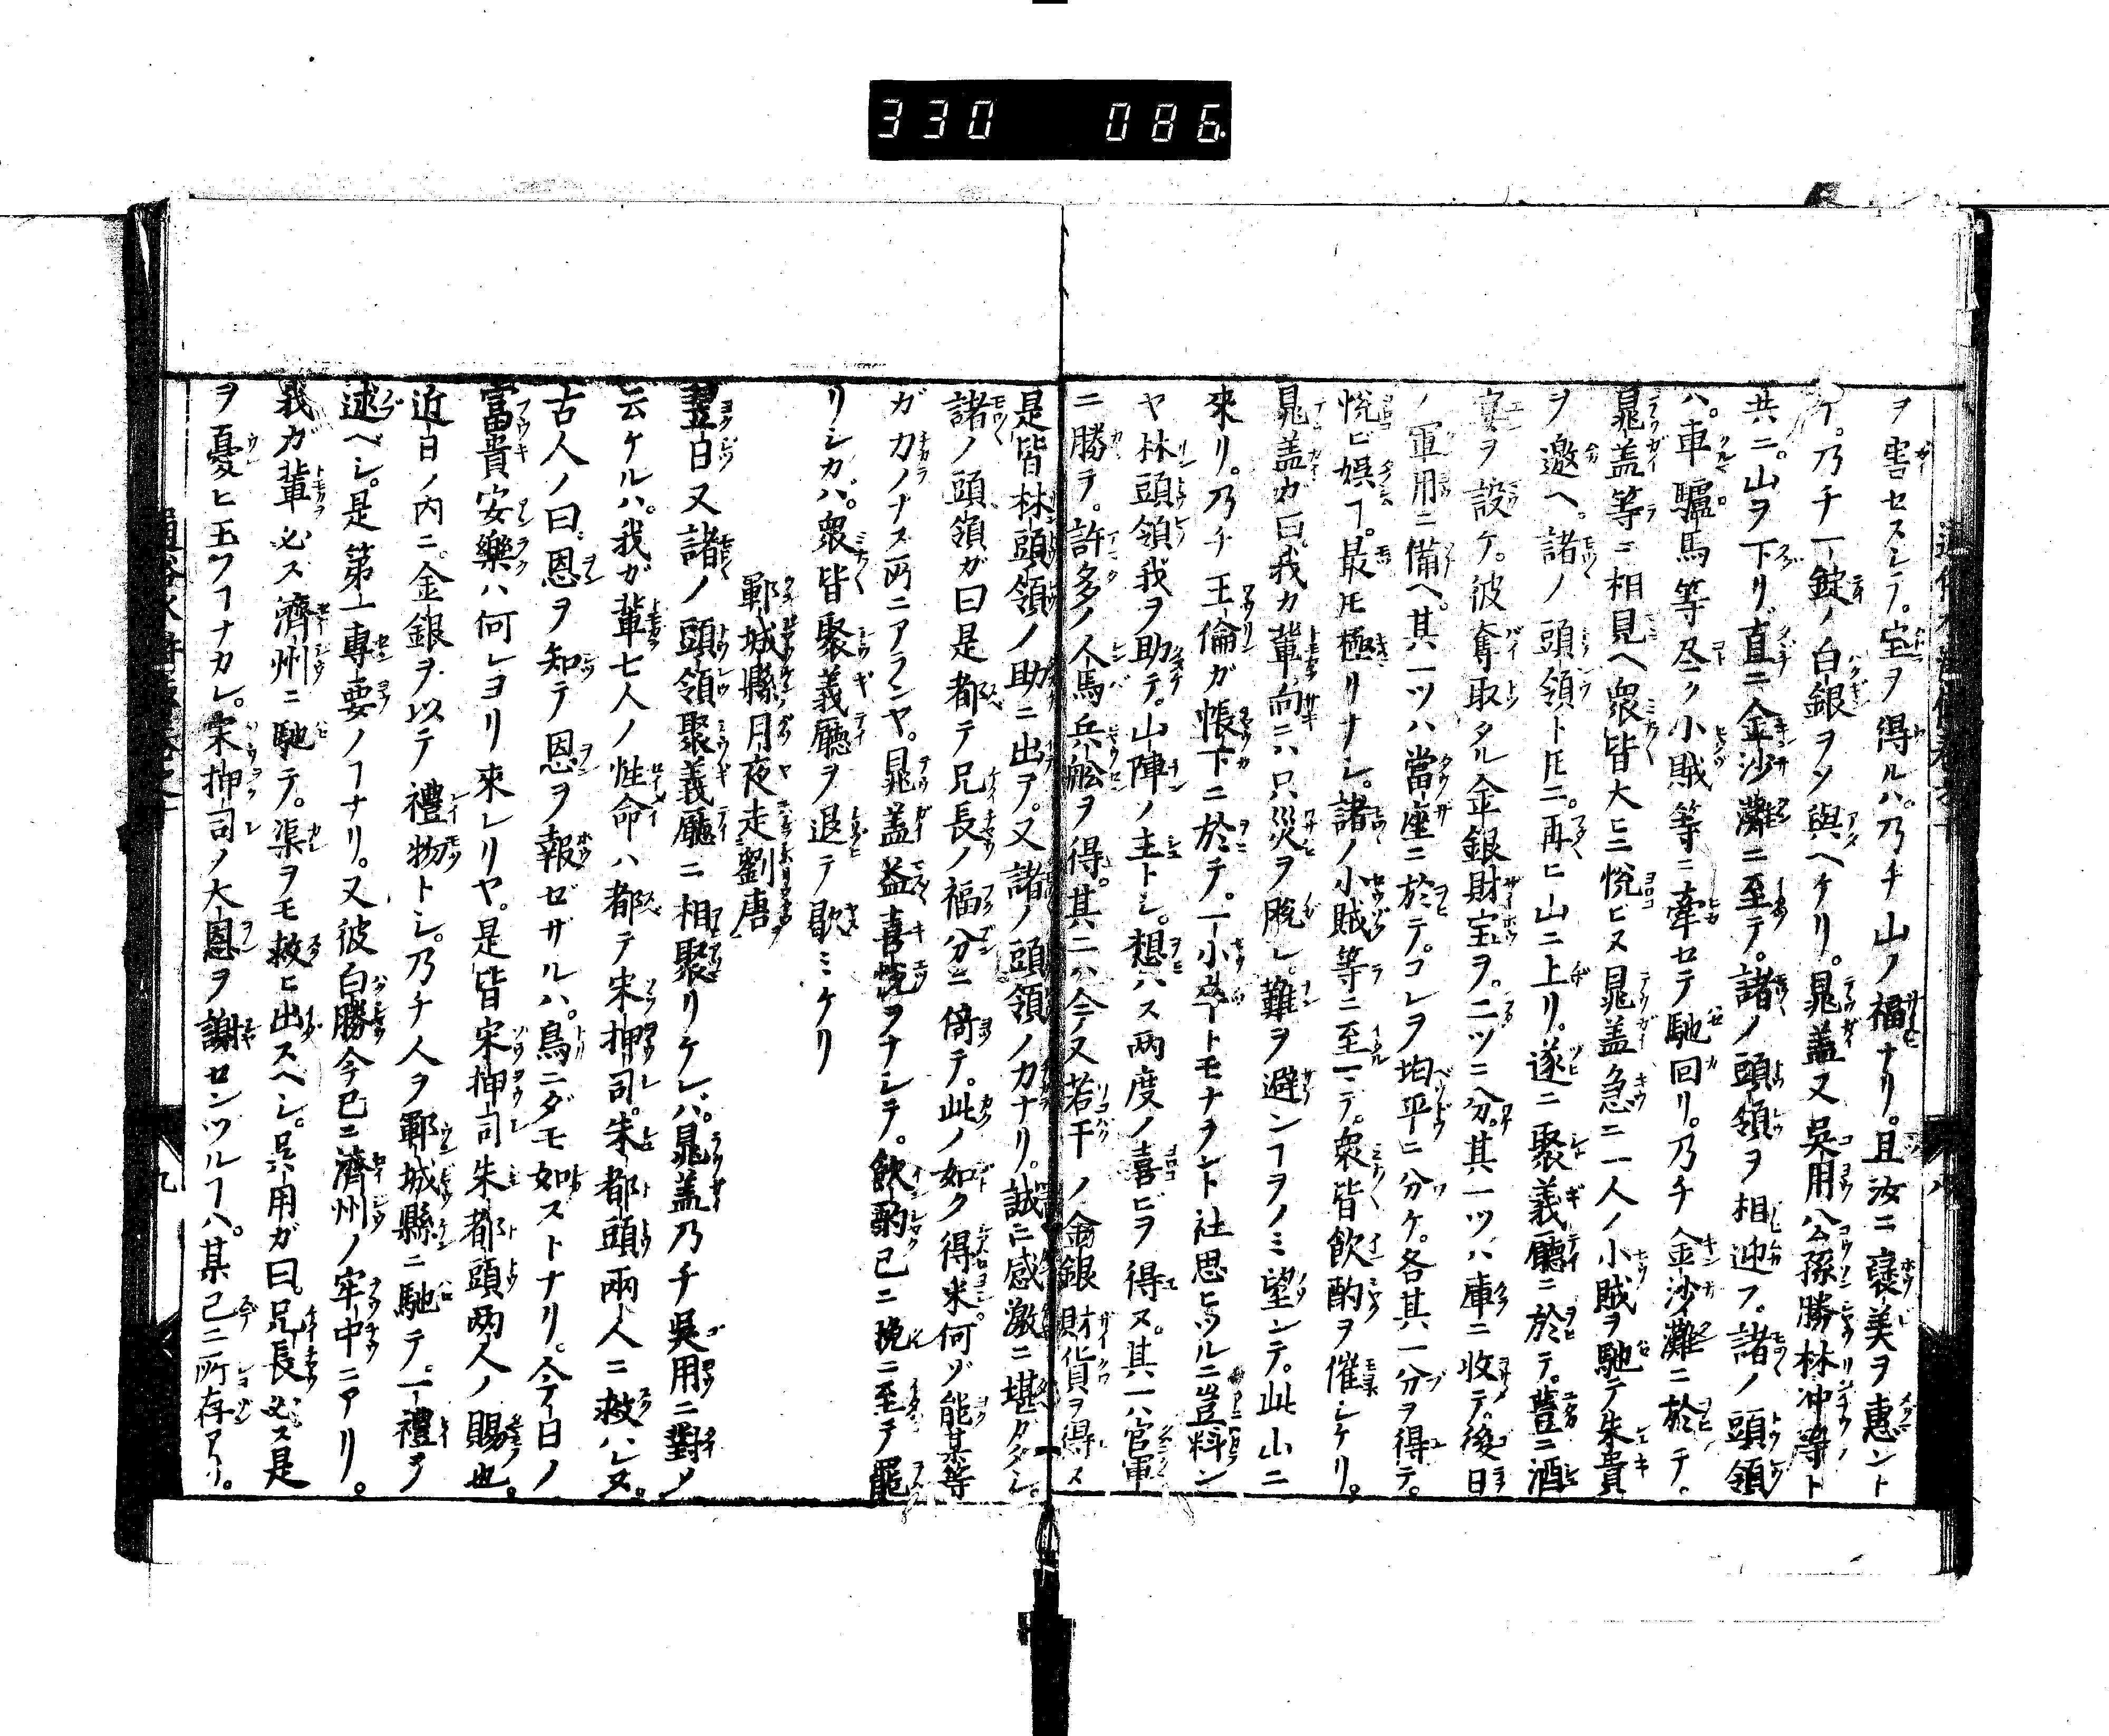 330 086
ヲ害セスシテ。宝ヲ得ルハ。乃チ山ノ福ナリ。且汝ニ褒美ヲ惠ント
ケ。乃チ一錠ノ白銀ヲソ與ヘケリ。晁盖又吳用公孫勝林冲等ト
共ニ。山ヲ下リ直ニ金沙灘ニ至テ。諸ノ頭領ヲ相迎フ。諸ノ頭領
ハ。車驢馬等尽ク小賊等ニ牽セテ馳回リ。乃チ金沙灘ニ於テ。
晁盖等ニ相見ヘ衆皆大ニ悦ヒヌ晁盖急ニ一人ノ小賊ヲ馳テ朱貴
ヲ邀ヘ。諸ノ頭領トトモニ。再ヒ山ニ上リ。遂ニ聚義廳ニ於テ。豊ニ酒
宴ヲ設ケ。彼奪取タル金銀財宝ヲ。二ツニ分。其一ツハ庫ニ收テ。後日
ノ軍用ニ備ヘ。其一ツハ當座ニ於テ。コレヲ均平ニ分ケ。各其一分ヲ得テ。
悦ビ娯コ。最トモ極リナシ。諸ノ小賊等ニ至ニテ。衆皆飲酌ヲ催シケリ。
晁盖カ曰我カ輩向ニハ只災ヲ脱レ難ヲ避ンコヲノミ望ンテ。此山ニ
來リ。乃チ王倫ガ帳下ニ於テ。一小卒トモナラント社思ヒツルニ豈料ン
ヤ林頭領我ヲ助テ。山陣ノ主トシ。想ハス両度ノ喜ビヲ得ヌ。其一ハ官軍
ニ勝ヲ。許多ノ人馬兵舩ヲ得。其二ハ今又若干ノ金銀財貨ヲ得ス
是皆林頭領ノ助ニ出ヲ。又諸ノ頭領ノカナリ。誠ニ感激ニ堪タダシ。
諸ノ頭領ガ曰是都テ兄長ノ福分ニ倚テ。此ノ如ク得来。何ゾ能某等
ガカノナス所ニアランヤ。晁盖益喜悦ヲナシテ。飲酌已ニ晩ニ至テ罷
リシカバ。衆皆聚義廳ヲ退テ歇ミケリ
鄆城縣月夜走劉唐
翌日又諸ノ頭領聚義廳ニ相聚リケレバ。晁盖乃チ吳用ニ對ノ
云ケルハ。我ガ輩七人ノ性命ハ都テ宋押司。朱都頭兩人ニ救ハレヌ。
古人ノ曰。恩ヲ知テ恩ヲ報ゼザルハ。鳥ニダモ如ズトナリ。今日ノ
富貴安樂ハ何レヨリ來レリヤ。是皆宋押司朱都頭両人ノ賜也。
近日ノ内ニ。金銀ヲ以テ禮物トシ。乃チ人ヲ鄆城縣ニ馳テ。一禮ヲ
述ベシ。是第一專要ノコナリ。又彼白勝今已ニ濟州ノ牢中ニアリ。
我ガ輩必ス濟州ニ馳テ。渠ヲモ救ヒ出スヘシ。吳用ガ曰。兄長必ス是
ヲ憂ヒ玉フコナカレ。宋押司ノ大恩ヲ謝センツルコハ。某已ニ所存アリ。
九